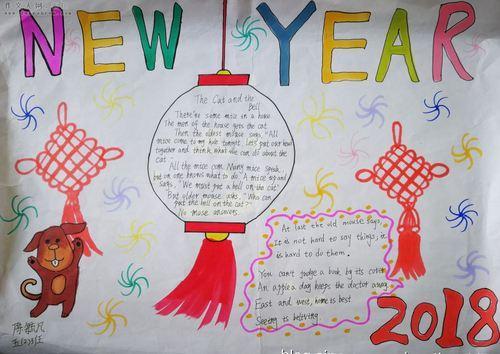 NEW YEAR
The Cat and the
Bell
There're some mice in a house
The man of the house gets the cat.
Then the oldest mouse says "All
mice come to my hole tonight. Let's put our heads
together and think what we can do about the
cat."
All the mice come. Many mice speak,
but no one knows what to do. A mice up and
says, "We must put a bell on the cat"
But older mouse asks, "Who can
put the bell on the cat?"
No mouse answers.
At last the old mouse says,
It is not hard to say things, it
is hard to do them.
You can't judge a book by its cover
An apple a day keeps the doctor away
East and west, home is best
Seeing is believing
2018